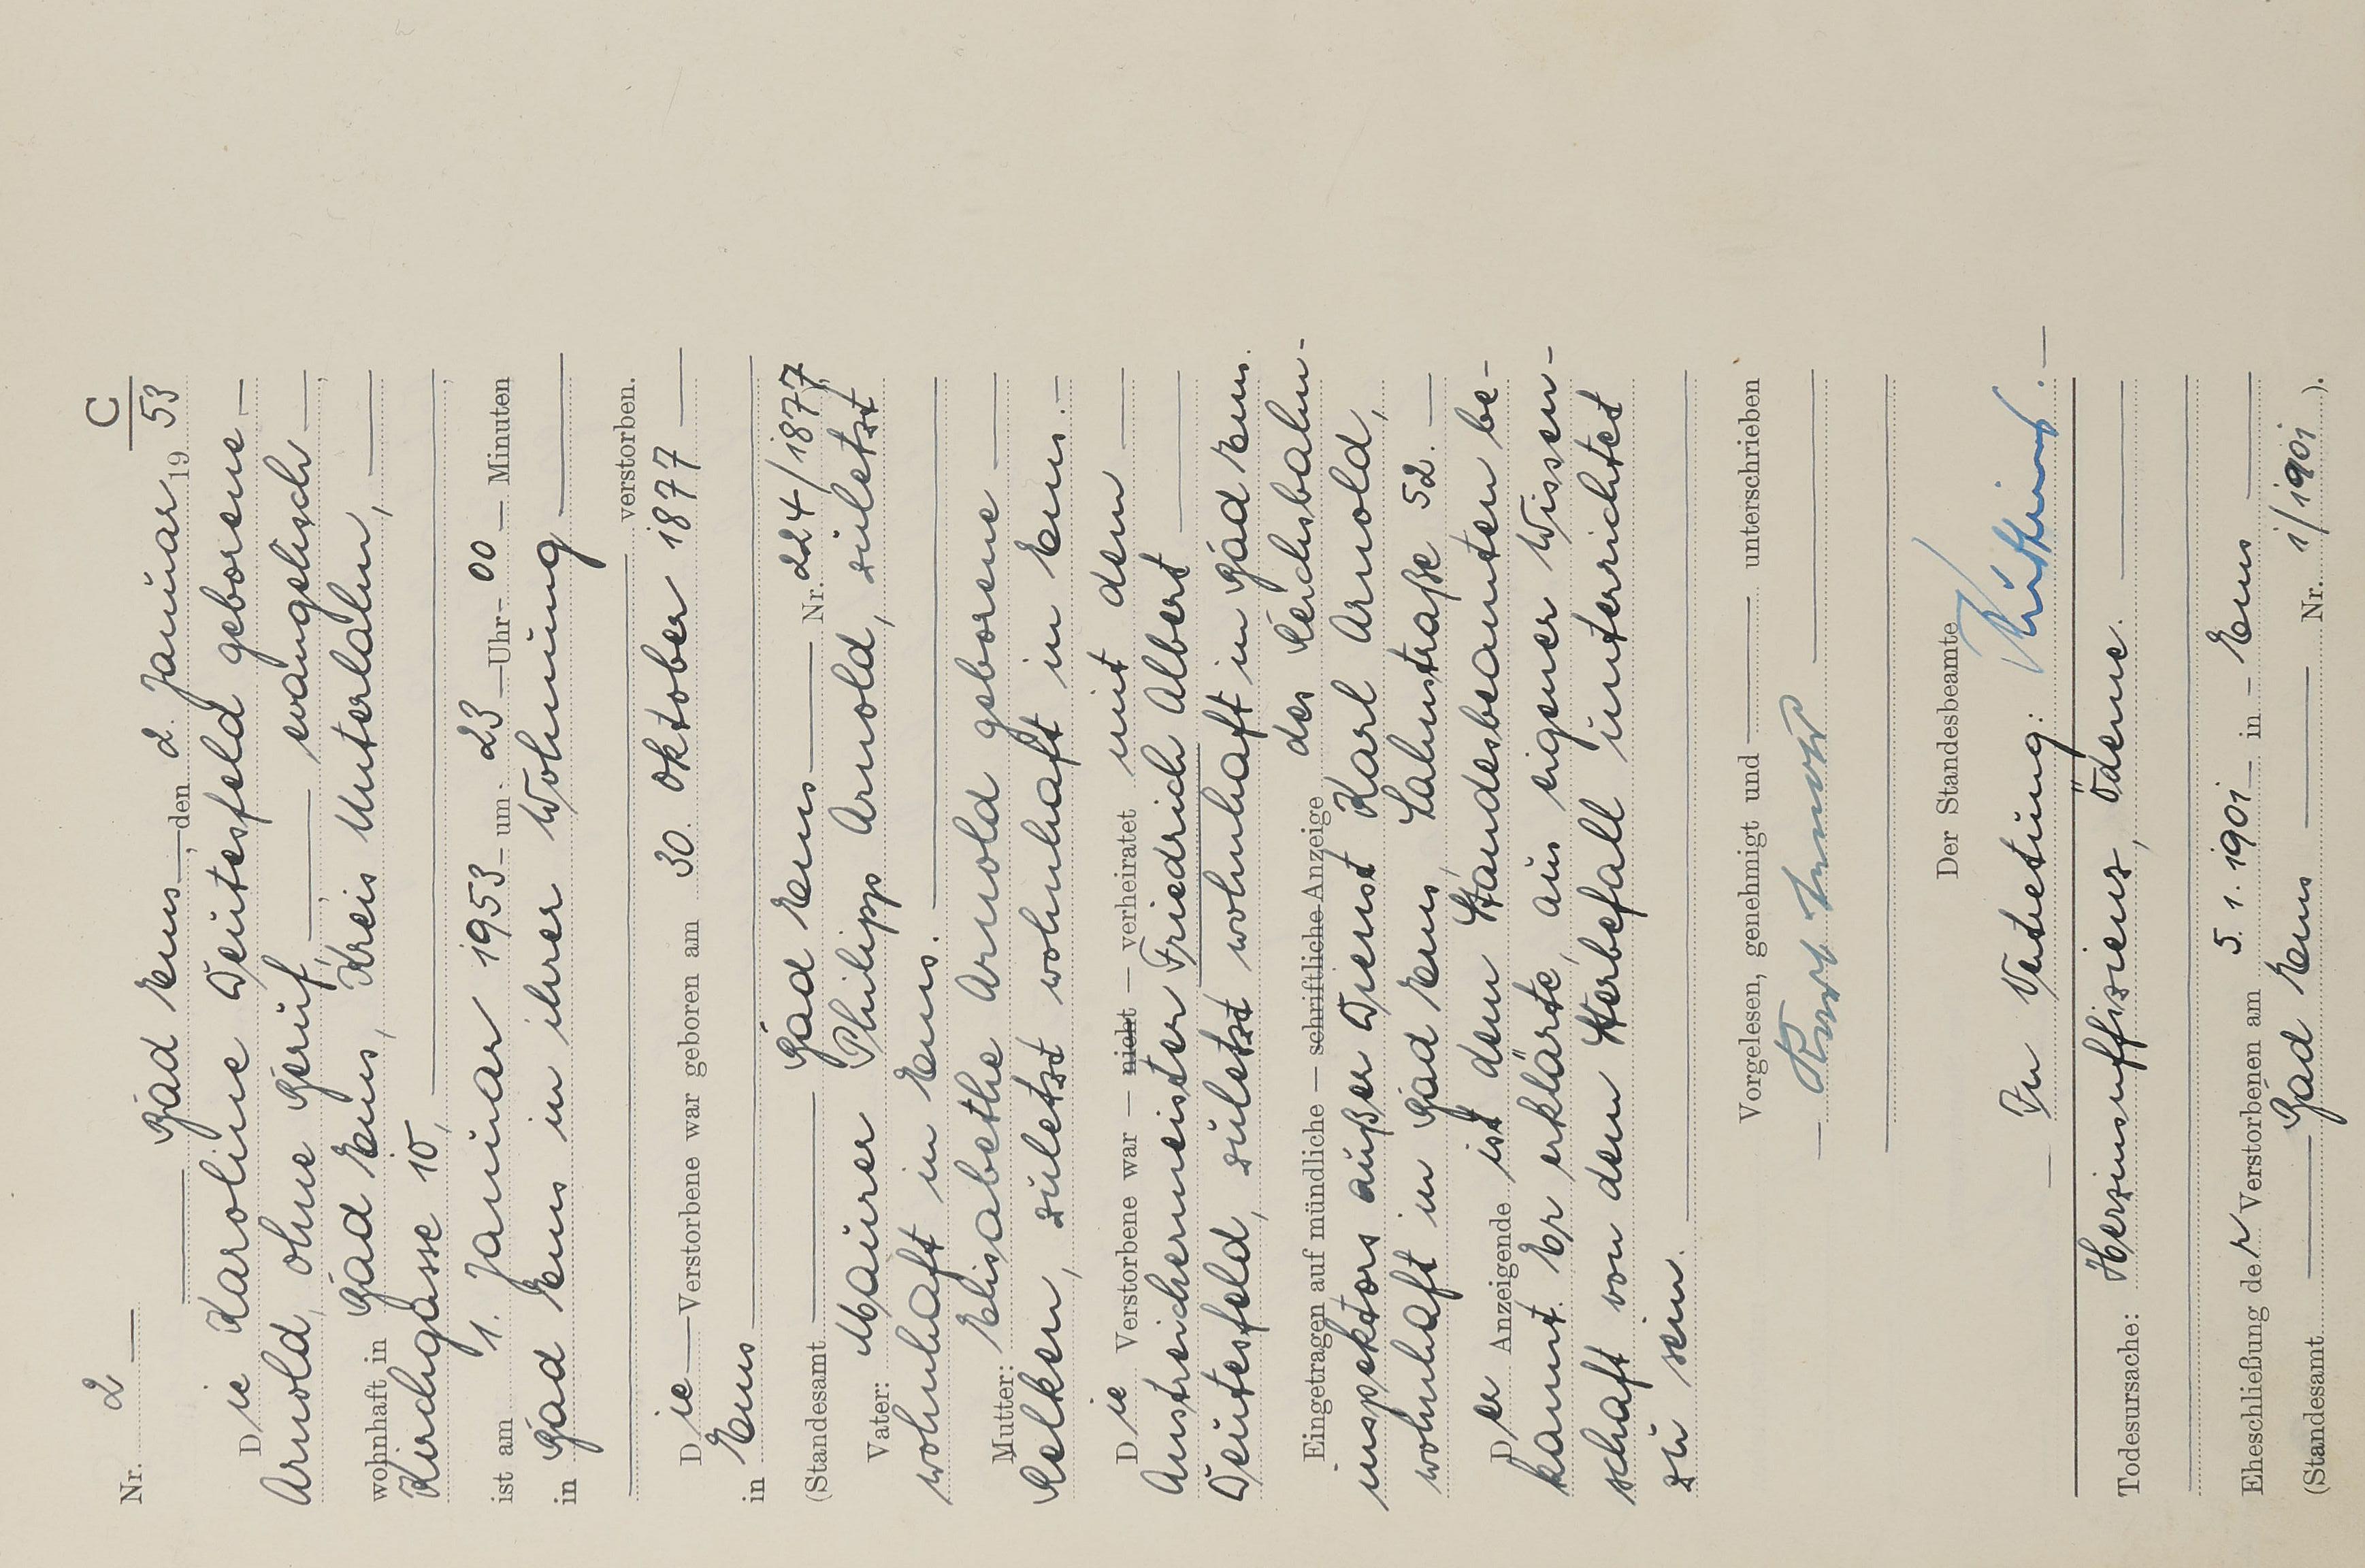 C
Nr. 2
Bad Ems, den 2. Januar 1953
Die Karoline Deutesfeld geborene
Arnold, ohne Beruf, evangelisch,
wohnhaft in Bad Ems, Kreis Unterlahn,
Kirchgasse 10,
ist am 1. Januar 1953 um 23 Uhr 00 Minuten
in Bad Ems in ihrer Wohnung
verstorben.
Die Verstorbene war geboren am 30. Oktober 1877
in Ems
(Standesamt Bad Ems Nr. 224/1877
Vater: Maurer Philipp Arnold, zuletzt
wohnhaft in Ems.
Mutter: Elisabethe Arnold geborene
Selken, zuletzt wohnhaft in Ems.-
Die Verstorbene war — nicht — verheiratet mit dem
Anstreichermeister Friedrich Albert
Deutesfeld, zuletzt wohnhaft in Bad Ems.
Eingetragen auf mündliche — schriftliche Anzeige des Reichsbahn-
inspektors außer Dienst Karl Arnold,
wohnhaft in Bad Ems, Lahnstraße 52.
Der Anzeigende ist dem Standesbeamten be-
kannt. Er erklärte, aus eigener Wissen-
schaft von dem Sterbefall unterrichtet
zu sein.
Vorgelesen, genehmigt und unterschrieben
Karl Arnold
Der Standesbeamte
In Vertretung:
Todesursache: Herzinsuffizienz, Ödeme.
Eheschließung der Verstorbenen am 5. 1. 1901 in Ems
(Standesamt Bad Ems Nr. 1/1901).